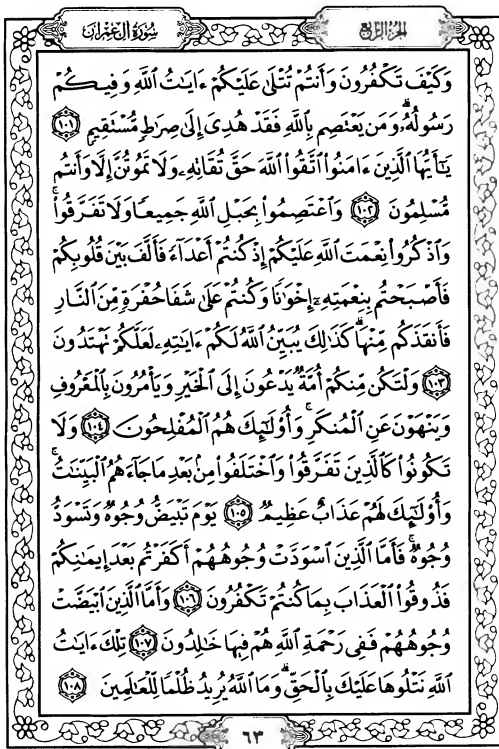 سُورَةُ آلِ عِمْرَانَ
الجُزءُ الرَّابِعُ
وَكَيْفَ تَكْفُرُونَ وَأَنتُمْ تُتْلَىٰ عَلَيْكُمْ ءَايَٰتُ ٱللَّهِ وَفِيكُمْ
رَسُولُهُۥۗ وَمَن يَعْتَصِم بِٱللَّهِ فَقَدْ هُدِىَ إِلَىٰ صِرَٰطٍ مُّسْتَقِيمٍ ١٠١
يَٰٓأَيُّهَا ٱلَّذِينَ ءَامَنُوا۟ ٱتَّقُوا۟ ٱللَّهَ حَقَّ تُقَاتِهِۦ وَلَا تَمُوتُنَّ إِلَّا وَأَنتُم
مُّسْلِمُونَ ١٠٢ وَٱعْتَصِمُوا۟ بِحَبْلِ ٱللَّهِ جَمِيعًا وَلَا تَفَرَّقُوا۟ۚ
وَٱذْكُرُوا۟ نِعْمَتَ ٱللَّهِ عَلَيْكُمْ إِذْ كُنتُمْ أَعْدَآءً فَأَلَّفَ بَيْنَ قُلُوبِكُمْ
فَأَصْبَحْتُم بِنِعْمَتِهِۦٓ إِخْوَٰنًا وَكُنتُمْ عَلَىٰ شَفَا حُفْرَةٍ مِّنَ ٱلنَّارِ
فَأَنقَذَكُم مِّنْهَاۗ كَذَٰلِكَ يُبَيِّنُ ٱللَّهُ لَكُمْ ءَايَٰتِهِۦ لَعَلَّكُمْ تَهْتَدُونَ
١٠٣ وَلْتَكُن مِّنكُمْ أُمَّةٌ يَدْعُونَ إِلَى ٱلْخَيْرِ وَيَأْمُرُونَ بِٱلْمَعْرُوفِ
وَيَنْهَوْنَ عَنِ ٱلْمُنكَرِۚ وَأُو۟لَٰٓئِكَ هُمُ ٱلْمُفْلِحُونَ ١٠٤ وَلَا
تَكُونُوا۟ كَٱلَّذِينَ تَفَرَّقُوا۟ وَٱخْتَلَفُوا۟ مِنۢ بَعْدِ مَا جَآءَهُمُ ٱلْبَيِّنَٰتُۚ
وَأُو۟لَٰٓئِكَ لَهُمْ عَذَابٌ عَظِيمٌ ١٠٥ يَوْمَ تَبْيَضُّ وُجُوهٌ وَتَسْوَدُّ
وُجُوهٌۚ فَأَمَّا ٱلَّذِينَ ٱسْوَدَّتْ وُجُوهُهُمْ أَكَفَرْتُم بَعْدَ إِيمَٰنِكُمْ
فَذُوقُوا۟ ٱلْعَذَابَ بِمَا كُنتُمْ تَكْفُرُونَ ١٠٦ وَأَمَّا ٱلَّذِينَ ٱبْيَضَّتْ
وُجُوهُهُمْ فَفِى رَحْمَةِ ٱللَّهِ هُمْ فِيهَا خَٰلِدُونَ ١٠٧ تِلْكَ ءَايَٰتُ
ٱللَّهِ نَتْلُوهَا عَلَيْكَ بِٱلْحَقِّۗ وَمَا ٱللَّهُ يُرِيدُ ظُلْمًا لِّلْعَٰلَمِينَ ١٠٨
٦٣